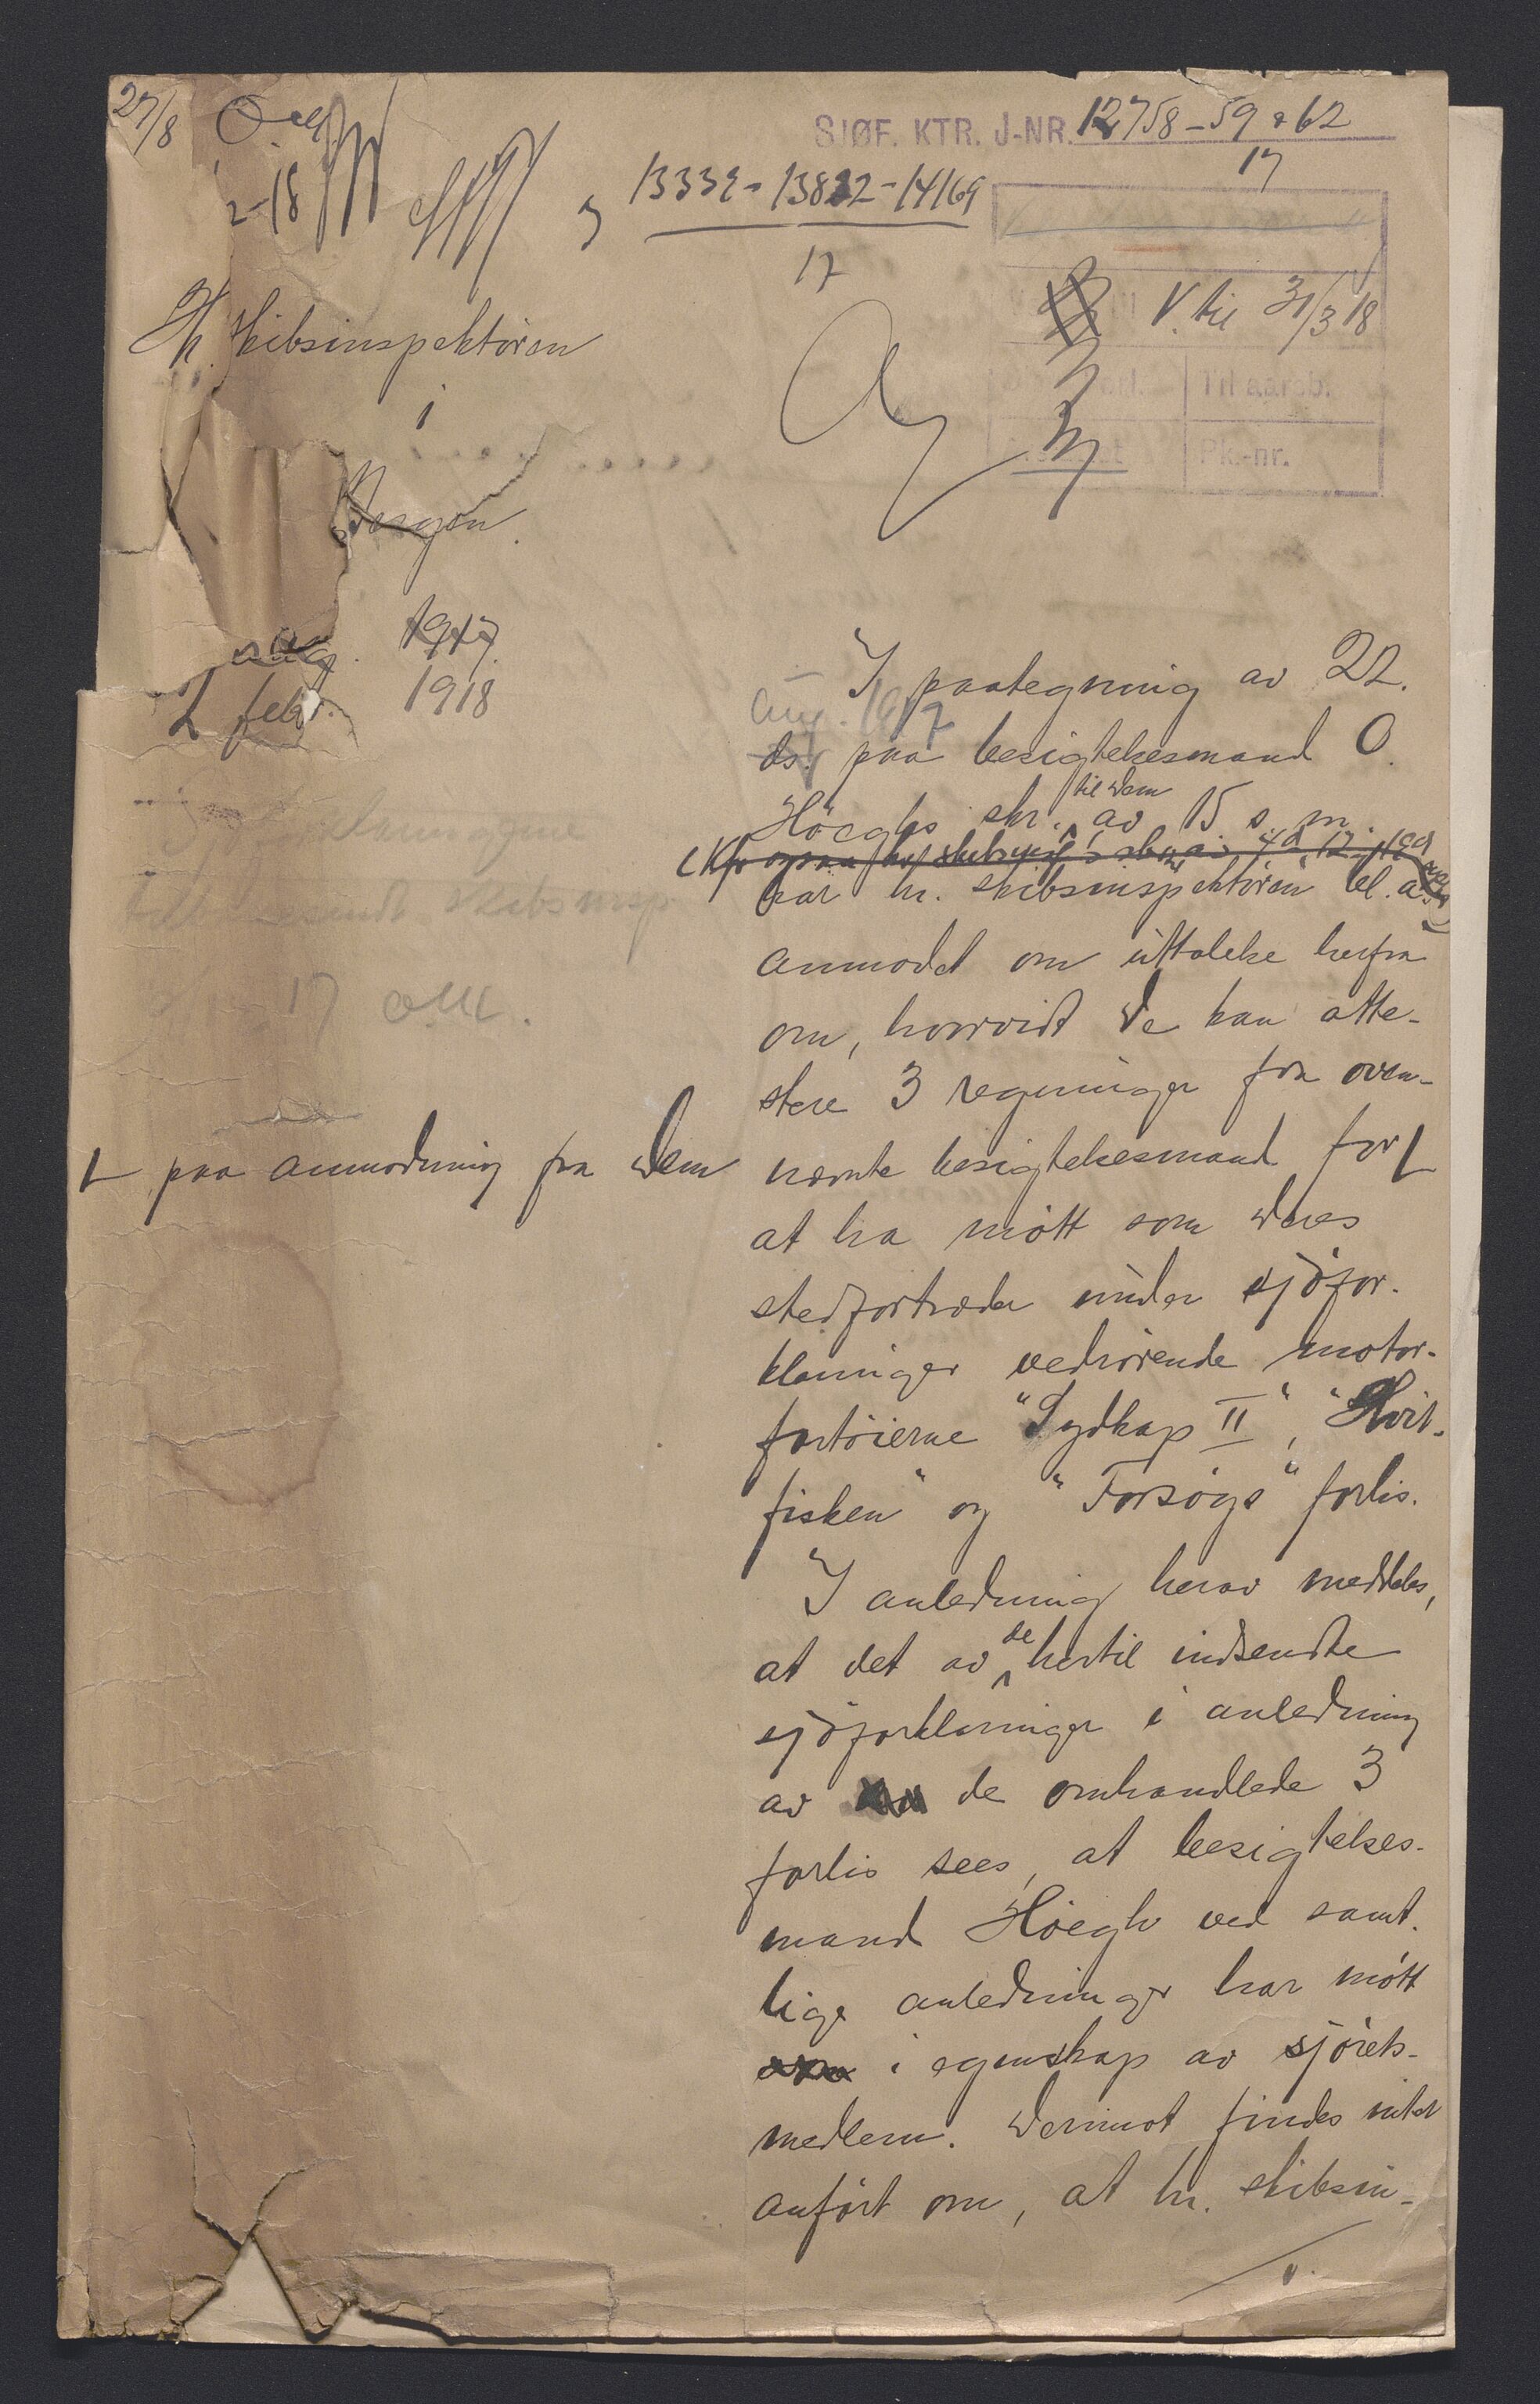 27/8
2-18
SJØF. KTR. J-NR. 12758-59 & 62
17
13832-14169
17
V. til 31/3 18
Til aarsb.
Pk.-nr.
Hr. Skibsinspektøren
i
Bergen.
aug. 1917.
2 febr. 1918
I paategning av 22.
aug. 1917
ds. paa besigtelsesmand O.
til Dem
Höeghs skr. av 15 s. m.
har hr. skibsinspektøren bl. a.
anmodet om uttalelse herfra
om, hvorvidt De kan atte-
stere 3 regninger fra oven-
nævnte besigtelsesmand for
paa anmodning fra Dem
at ha møtt som Deres
stedfortræder under sjøfor-
klaringer vedrørende motor-
fartøierne "Sydkap II", "Hvit-
fisken" og "Forsøgs" forlis.
I anledning herav meddeles,
at det av de hertil indsendte
sjøforklaringer i anledning
av de omhandlede 3
forlis sees, at besigtelses-
mand Höegh ved samt-
lige anledninger har møtt
i egenskap av sjørets-
medlem. Derimot findes intet
anført om, at hr. skibsin-
17 okt.
skibsinsp